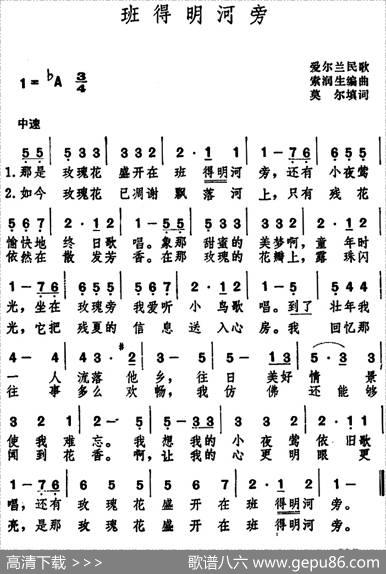 班得明河旁
爱尔兰民歌
1=♭A 3/4
索润生编曲
莫尔填词
中速
5 5 | 5 3 3 | 3 3 2 | 2· 1 1 | 1 - 7 6 | 6 5 5 |
1.那是 玫瑰花 盛开在 班 得明河 旁,还有 小夜莺
2.如今 玫瑰花 已凋谢 飘 落河 上,只有 残花
5 6 7 | 2· 1 2 | 1 - 5 5 | 5 3 3 | 3 3 2 | 2· 1 1 |
愉快地 终日歌 唱。象那 甜蜜的 美梦啊,童年时
依然在 散发芳 香。在那 玫瑰的 花瓣上,露珠闪
1 - 7 6 | 6 5 5 | 5 6 7 | 2· 1 2 | 1 - 1 1 | 5 3 5 |
光,坐在 玫瑰旁 我爱听 小鸟歌 唱。到了 壮年我
光,它把 残夏的 信息 送入心 房。我 回忆那
4 - 4 | 4 3· 2 | 2 - 5 | 5 - 1 3 | 5· 3 |
一人 流落他 乡,往日 美好情景
往事 多么欢 畅,我仿佛 还能够
3 2 1 | 2 - 5 | 5 - 3 3 | 3 3 2 | 2· 1 1 |
使我难 忘。我想我的 小夜莺 依旧歌
闻到花 香。啊,让我的 心更明 眼更
1 - 7 6 | 6 5 5 | 5 6 7 | 2· 1 2 | 1 -
唱,还有 玫瑰花 盛开在 班得明河 旁。
亮,是那 玫瑰花 盛开在 班得明河 旁。
高清下载 >>>
歌谱八六 www.gepu86.com